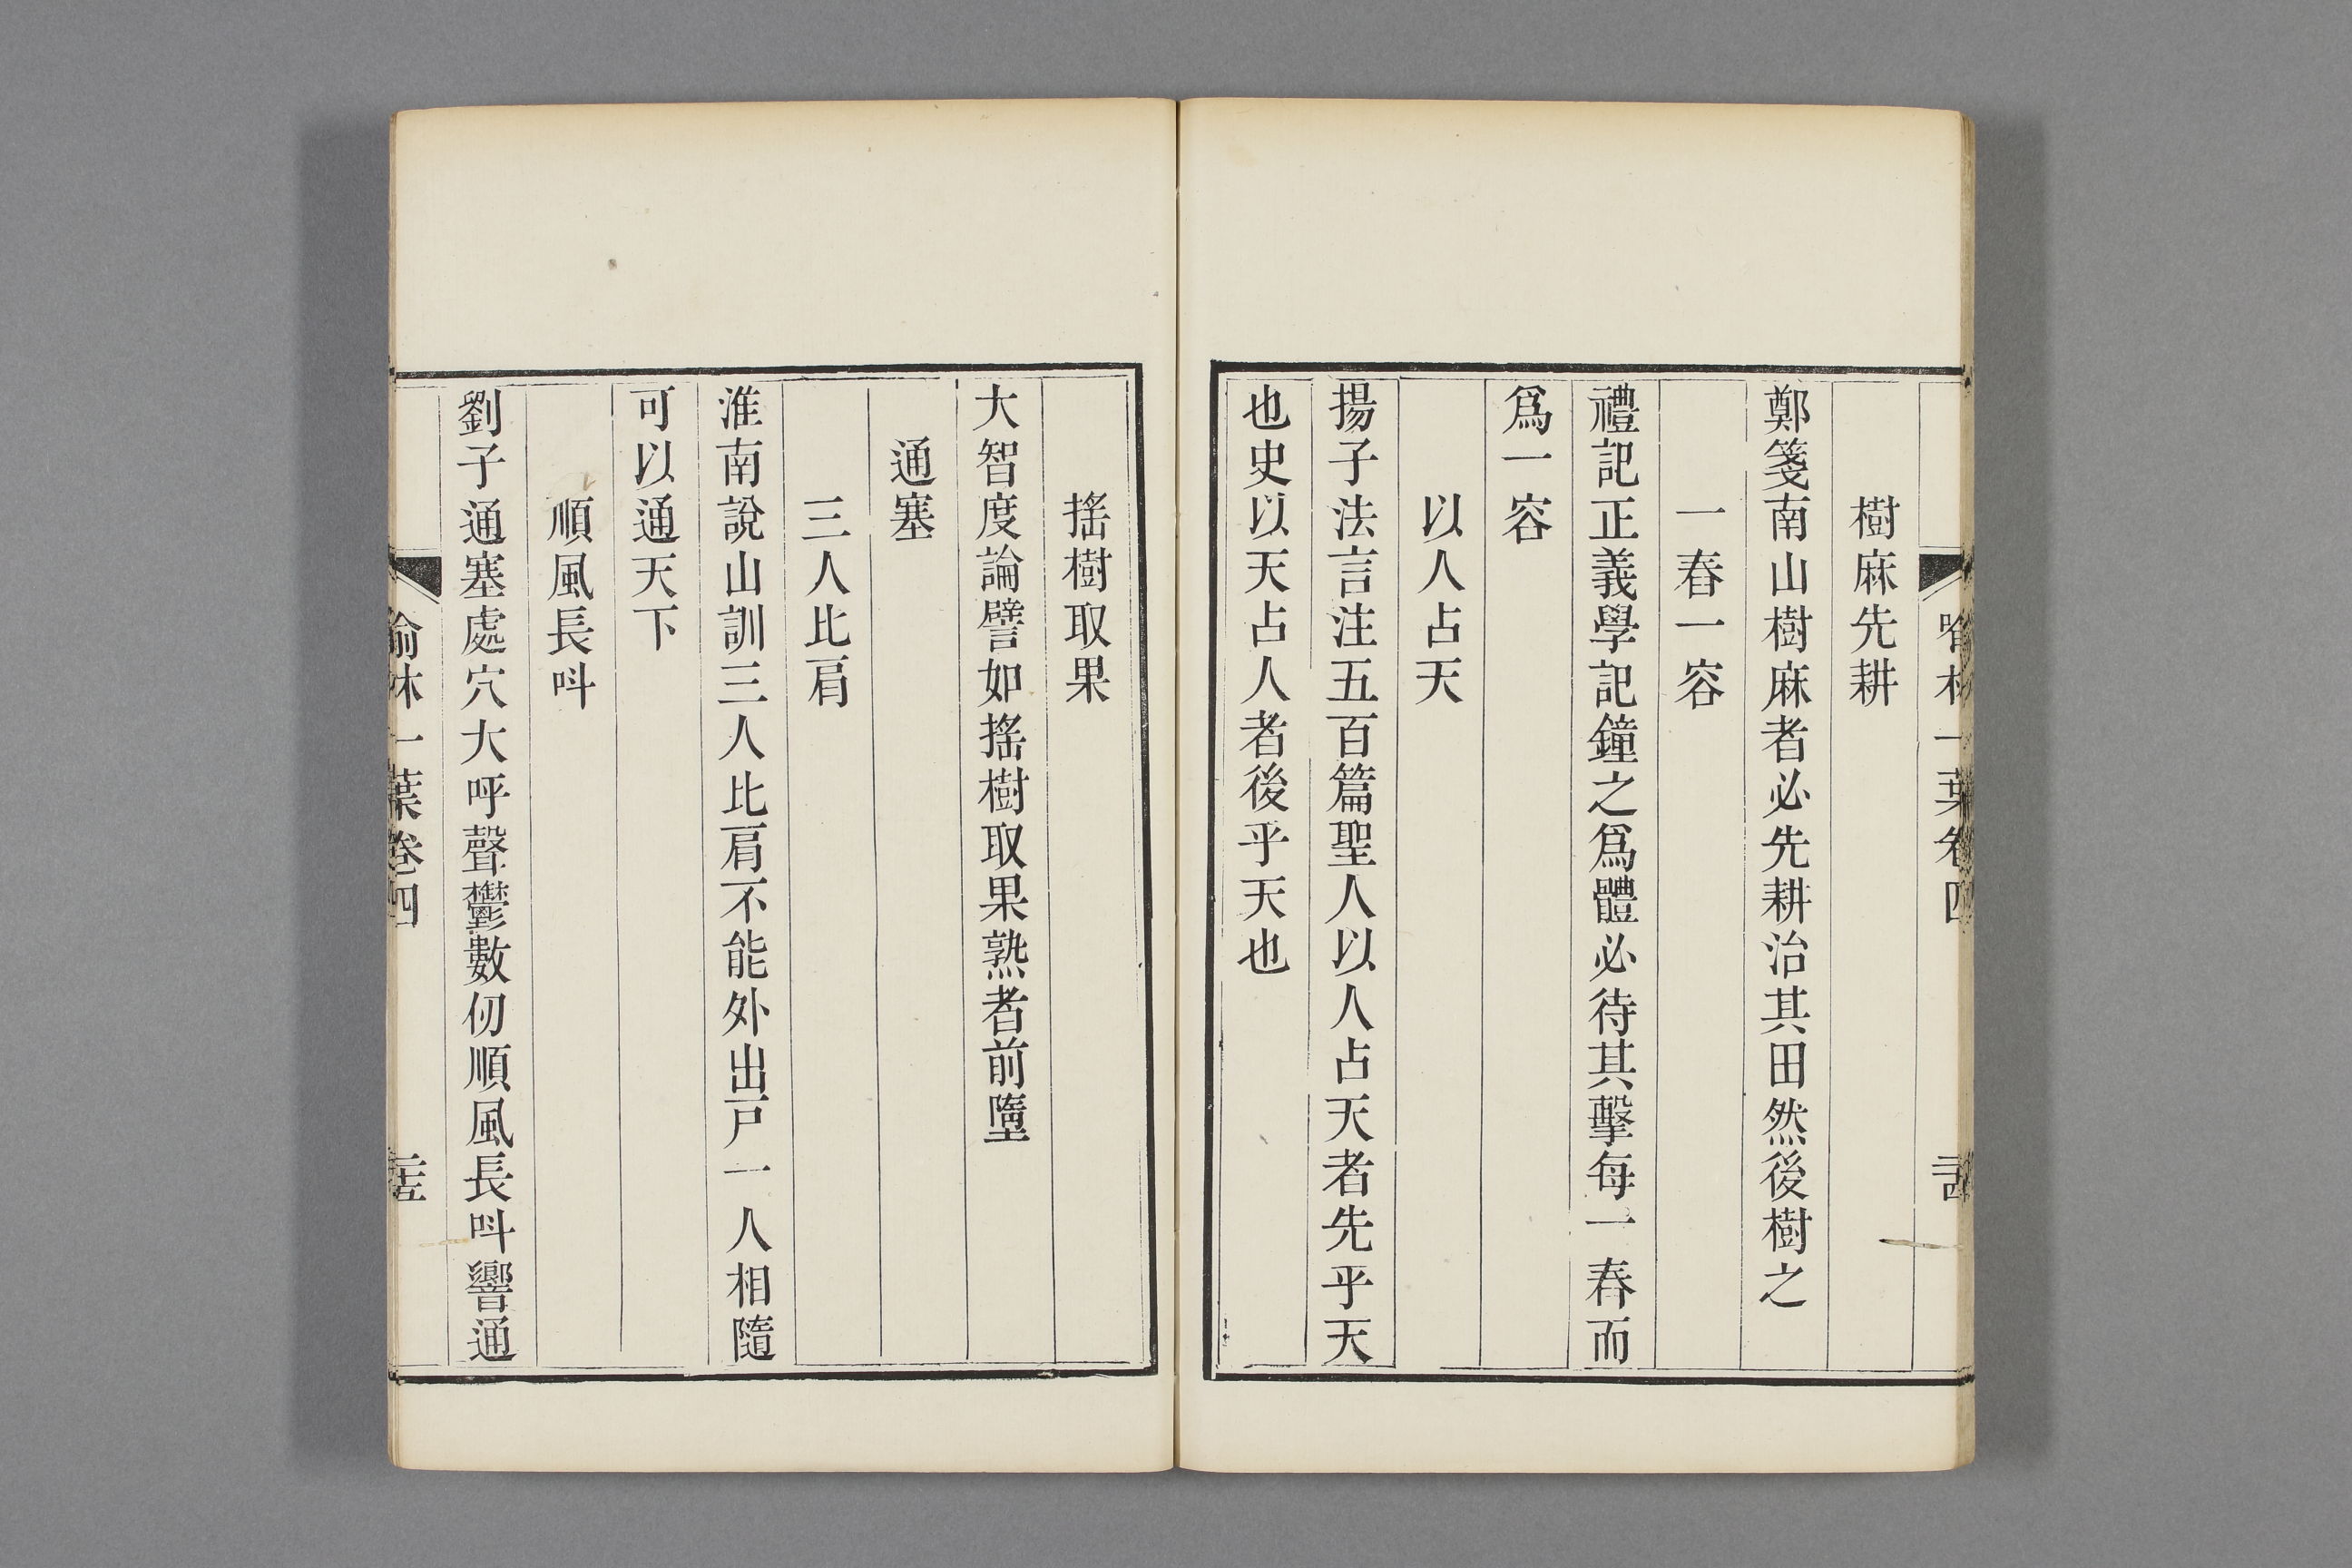 樹麻先耕
鄭箋南山樹麻者必先耕治其田然後樹之
一舂一容
禮記正義學記鐘之爲體必待其擊每一舂而
爲一容
以人占天
揚子法言注五百篇聖人以人占天者先乎天
也史以天占人者後乎天也
搖樹取果
大智度論譬如搖樹取果熟者前墮
通塞
三人比肩
淮南說山訓三人比肩不能外出戸一人相隨
可以通天下
順風長呌
劉子通塞處穴大呼聲鬱數仞順風長呌響通
喻林一葉卷四